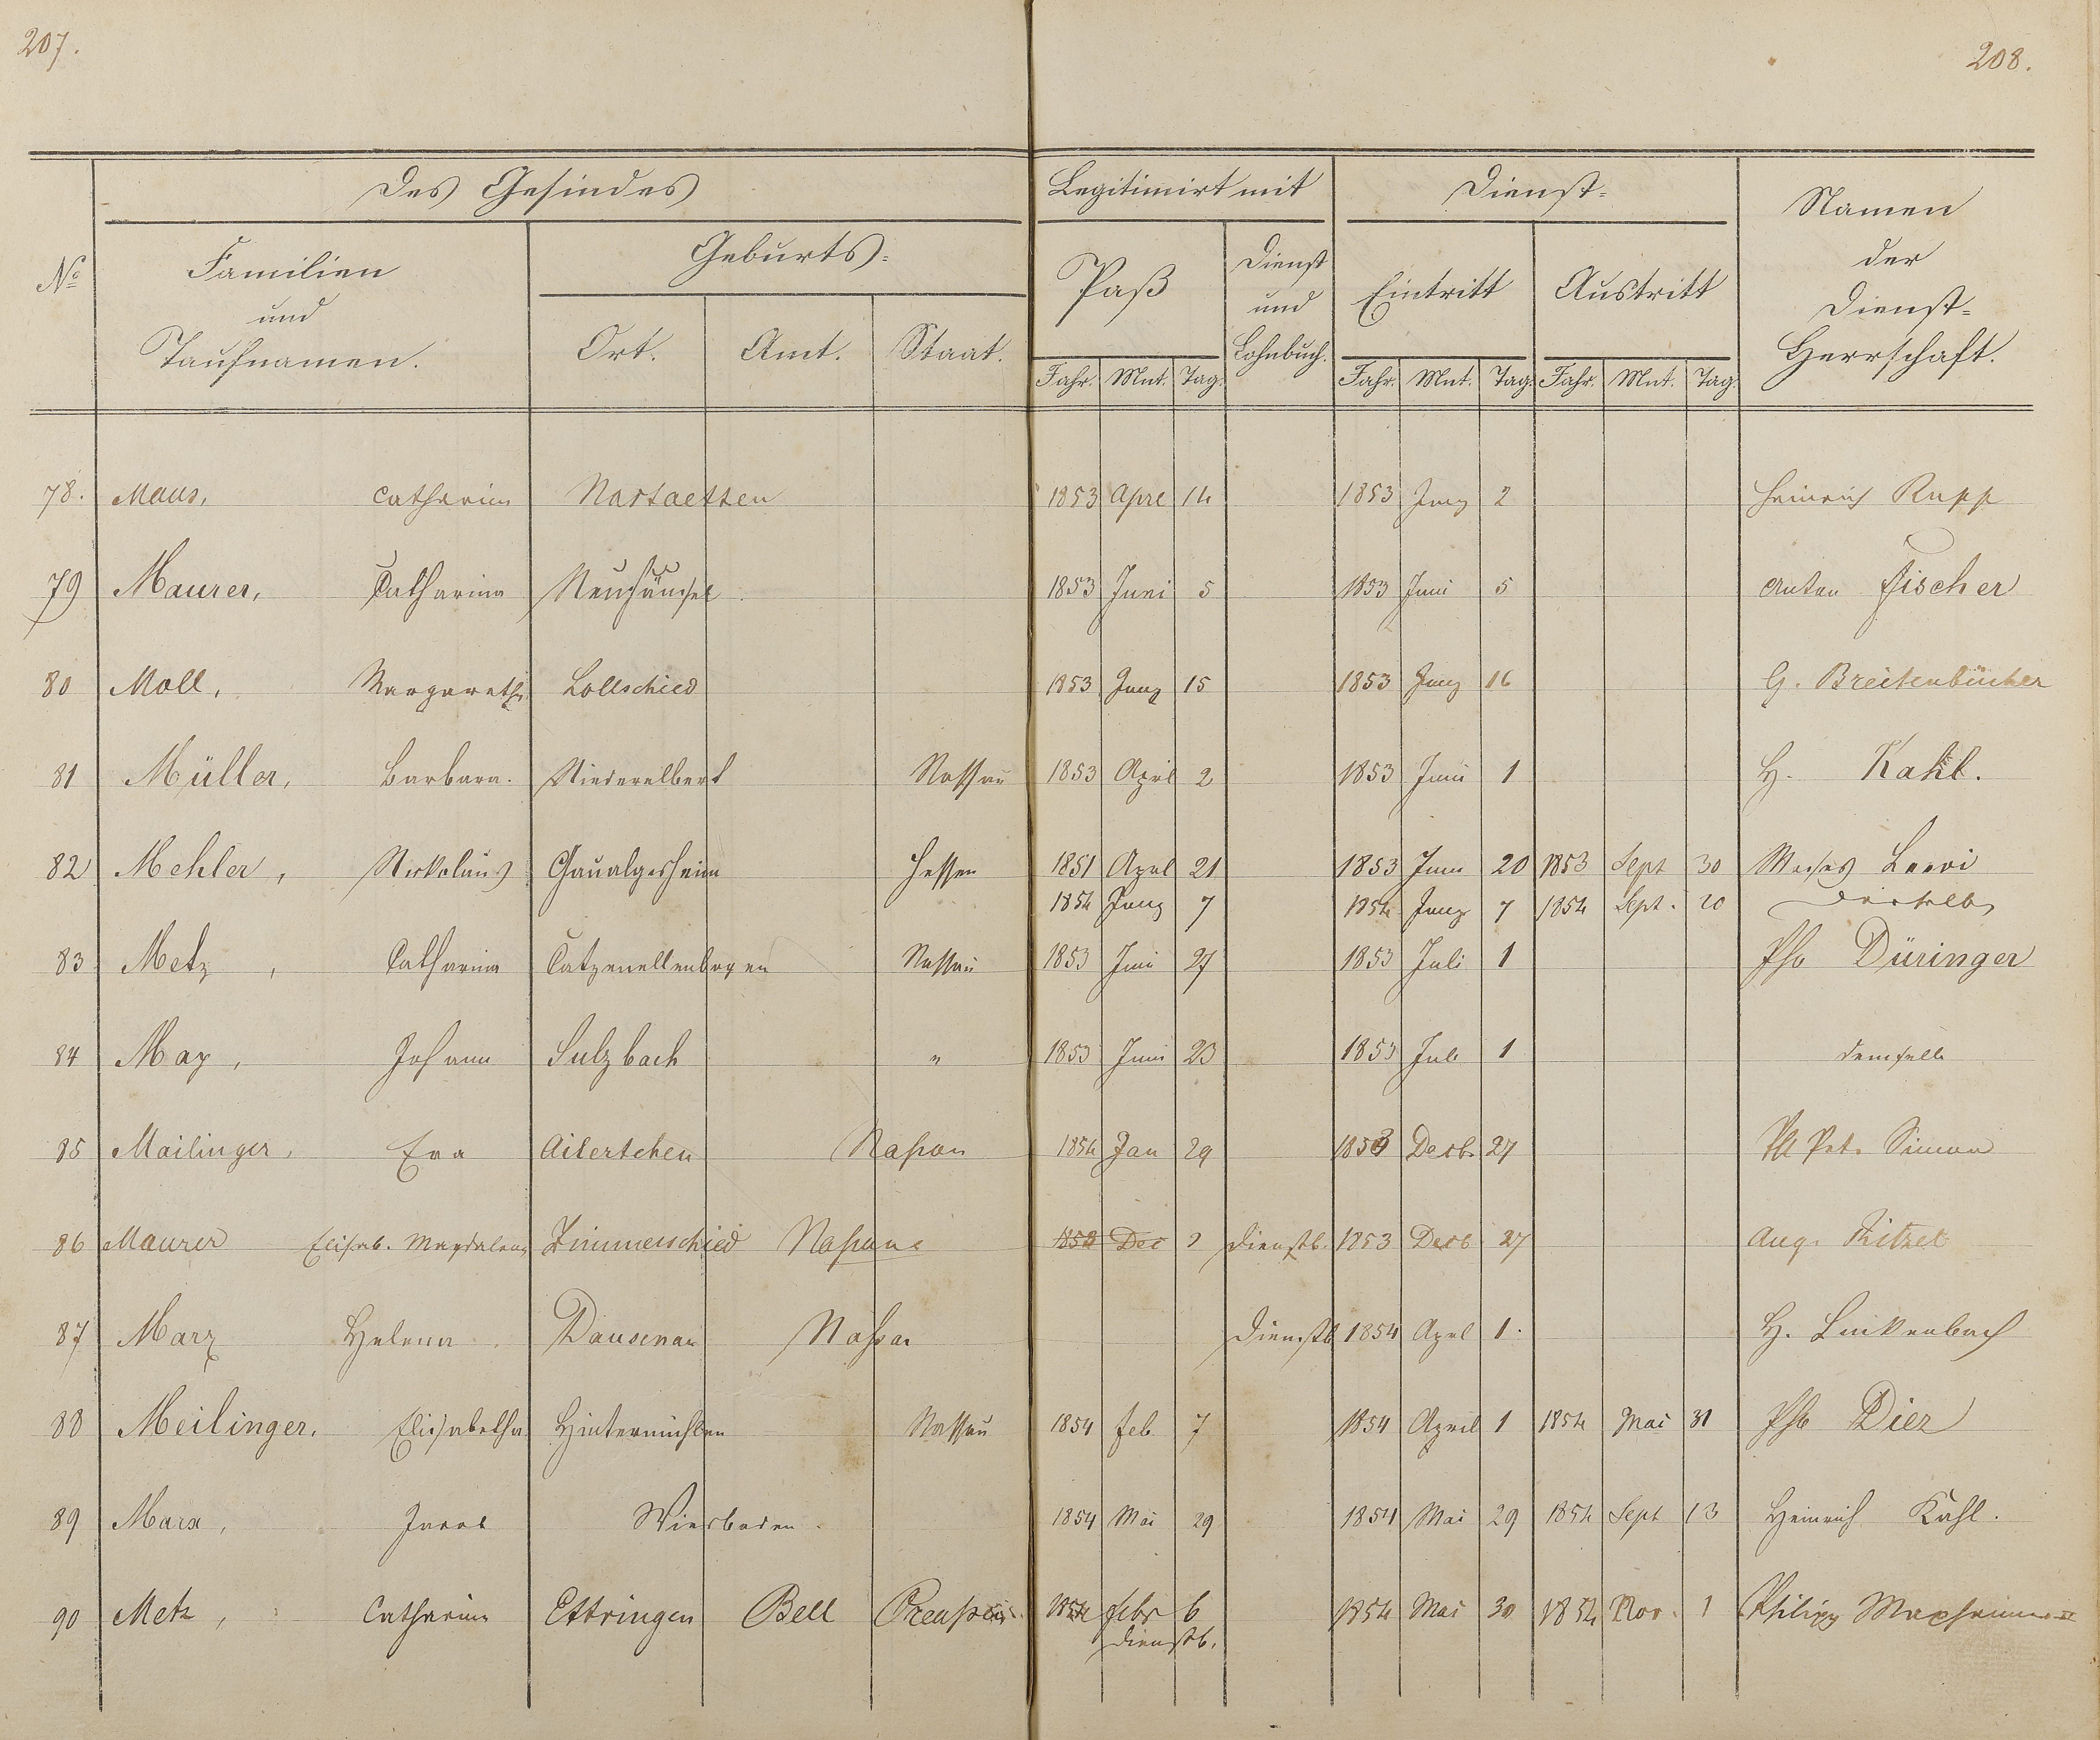 207.
208.
Des Gesindes
Legitimirt mit
Dienst-
Namen
der
Dienst-
Herrschaft.
No
Familien
und
Taufnamen.
Geburts-
Ort. Amt. Staat.
Paß
Dienst
und
Lohnbuch.
Eintritt
Austritt
Jahr. Mnt. Tag. Jahr. Mnt. Tag. Jahr. Mnt. Tag.
78. Maus, Catharina Nastaetten 1853 Aprl 14 1853 Juny 2 Heinrich Rupp
79 Maurer, Catharina Neuhäusel 1853 Juni 5 1853 Juni 5 Anton Fischer
80 Moll, Margaretha Lollschied 1853 Juny 15 1853 Juny 16 G. Breitenbücher
81 Müller, Barbara. Niederelbert Nassau 1853 April 2 1853 Juni 1 H. Kahl.
82 Mehler, Nickolaus Gaualgesheim Hessen 1851 Aprl 21 1853 Juni 20 1853 Sept 30 Moses Loevi
1854 Juny 7 1854 Juny 7 1854 Sept. 20 derselbe
83 Metz, Catharina Catzenellenbogen Nassau 1853 Juni 27 1853 Juli 1 Phb Düringer
84 May, Johann Sulzbach " 1853 Juni 23 1853 Juli 1 demselb
85 Mailinger, Eva Ailertchen Naßau 1854 Jan 29 1853 Decbr 27 Ph Pet. Simon
86 Maurer Elisab. Magdalena Zimmerschied Naßau 1853 Dec Dienstb. 1853 Decb 27 Aug. Ritzel
87 Marx Helena Dausenau Naßau Dienstb 1854 Aprl 1. H. Linkenbach
88 Meilinger, Elisabetha Hintermühlen Nassau 1854 Feb 7 1854 April 1 1854 Mai 31 Phb Diez
89 Marx, Jacob Wiesbaden. 1854 Mai 29 1854 Mai 29 1854 Sept 13 Heinrich Kahl.
90 Metz, Catharina Ettringen Bell Preußen. 1854 Febr 6 1854 Mai 30 1854 Nov. 1 Philipp
Dienstb.